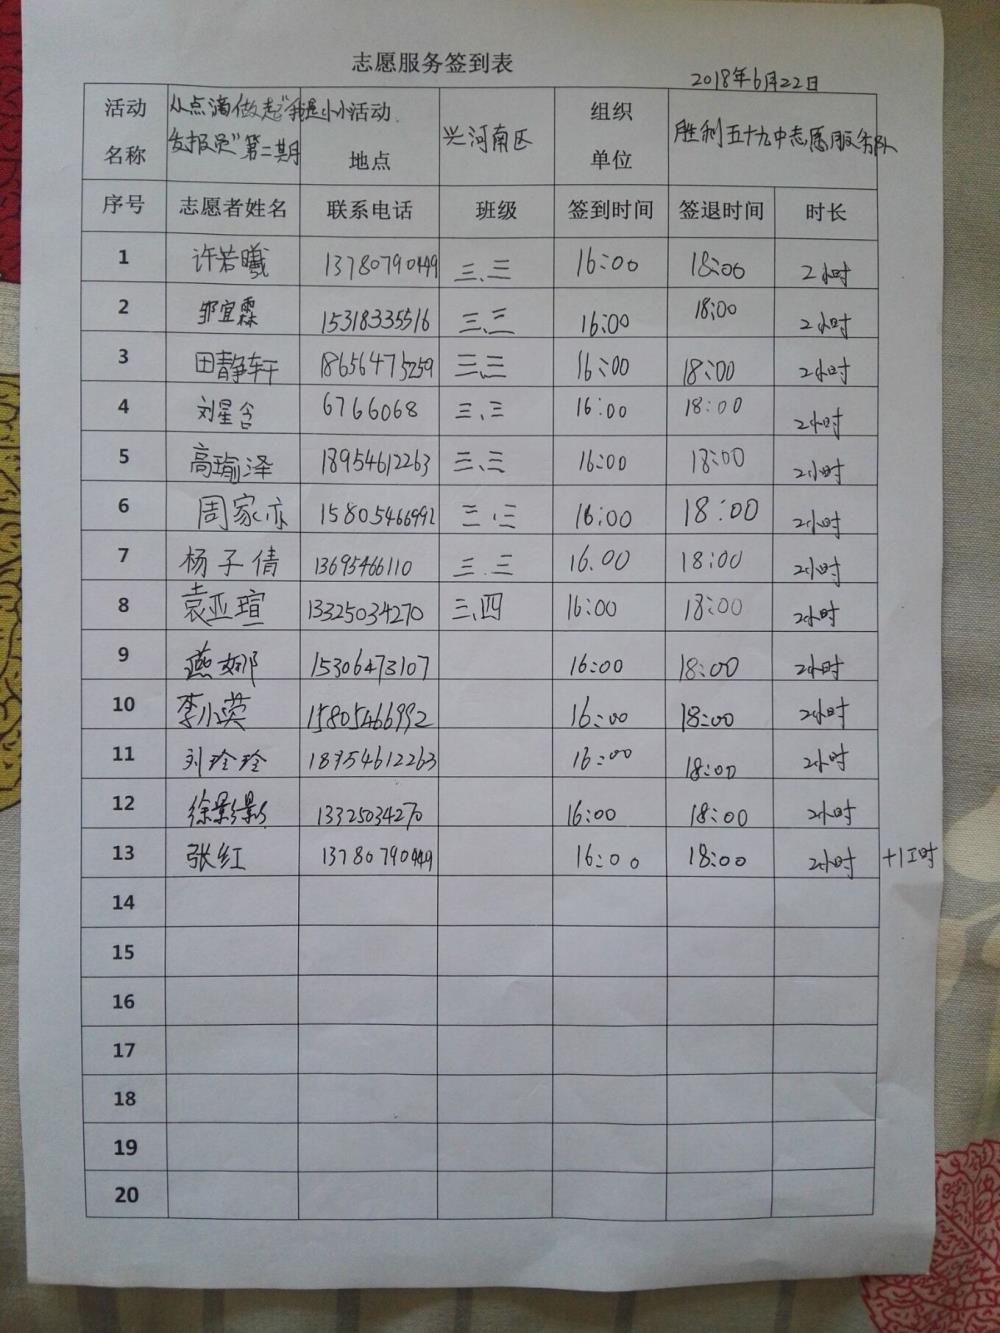 志愿服务签到表
2018年6月22日
活动名称 从点滴做起"我是小小发报员"第二期 活动地点 兴河南区 组织单位 胜利五十九中志愿服务队
序号 志愿者姓名 联系电话 班级 签到时间 签退时间 时长
1 许若曦 13780790449 三、三 16:00 18:00 2小时
2 邹宜霖 15318335516 三、三 16:00 18:00 2小时
3 田静轩 18656475259 三、三 16:00 18:00 2小时
4 刘星含 6766068 三、三 16:00 18:00 2小时
5 高瑜泽 18954612263 三、三 16:00 18:00 2小时
6 周家亦 15805466992 三、三 16:00 18:00 2小时
7 杨子倩 13695466110 三.三 16.00 18:00 2小时
8 袁亚瑄 13325034270 三、四 16:00 18:00 2小时
9 燕娜 15306473107 16:00 18:00 2小时
10 李小英 15805466992 16:00 18:00 2小时
11 刘玲玲 18954612263 16:00 18:00 2小时
12 徐影影 13325034270 16:00 18:00 2小时
13 张红 13780790449 16:00 18:00 2小时 +1工时
14
15
16
17
18
19
20